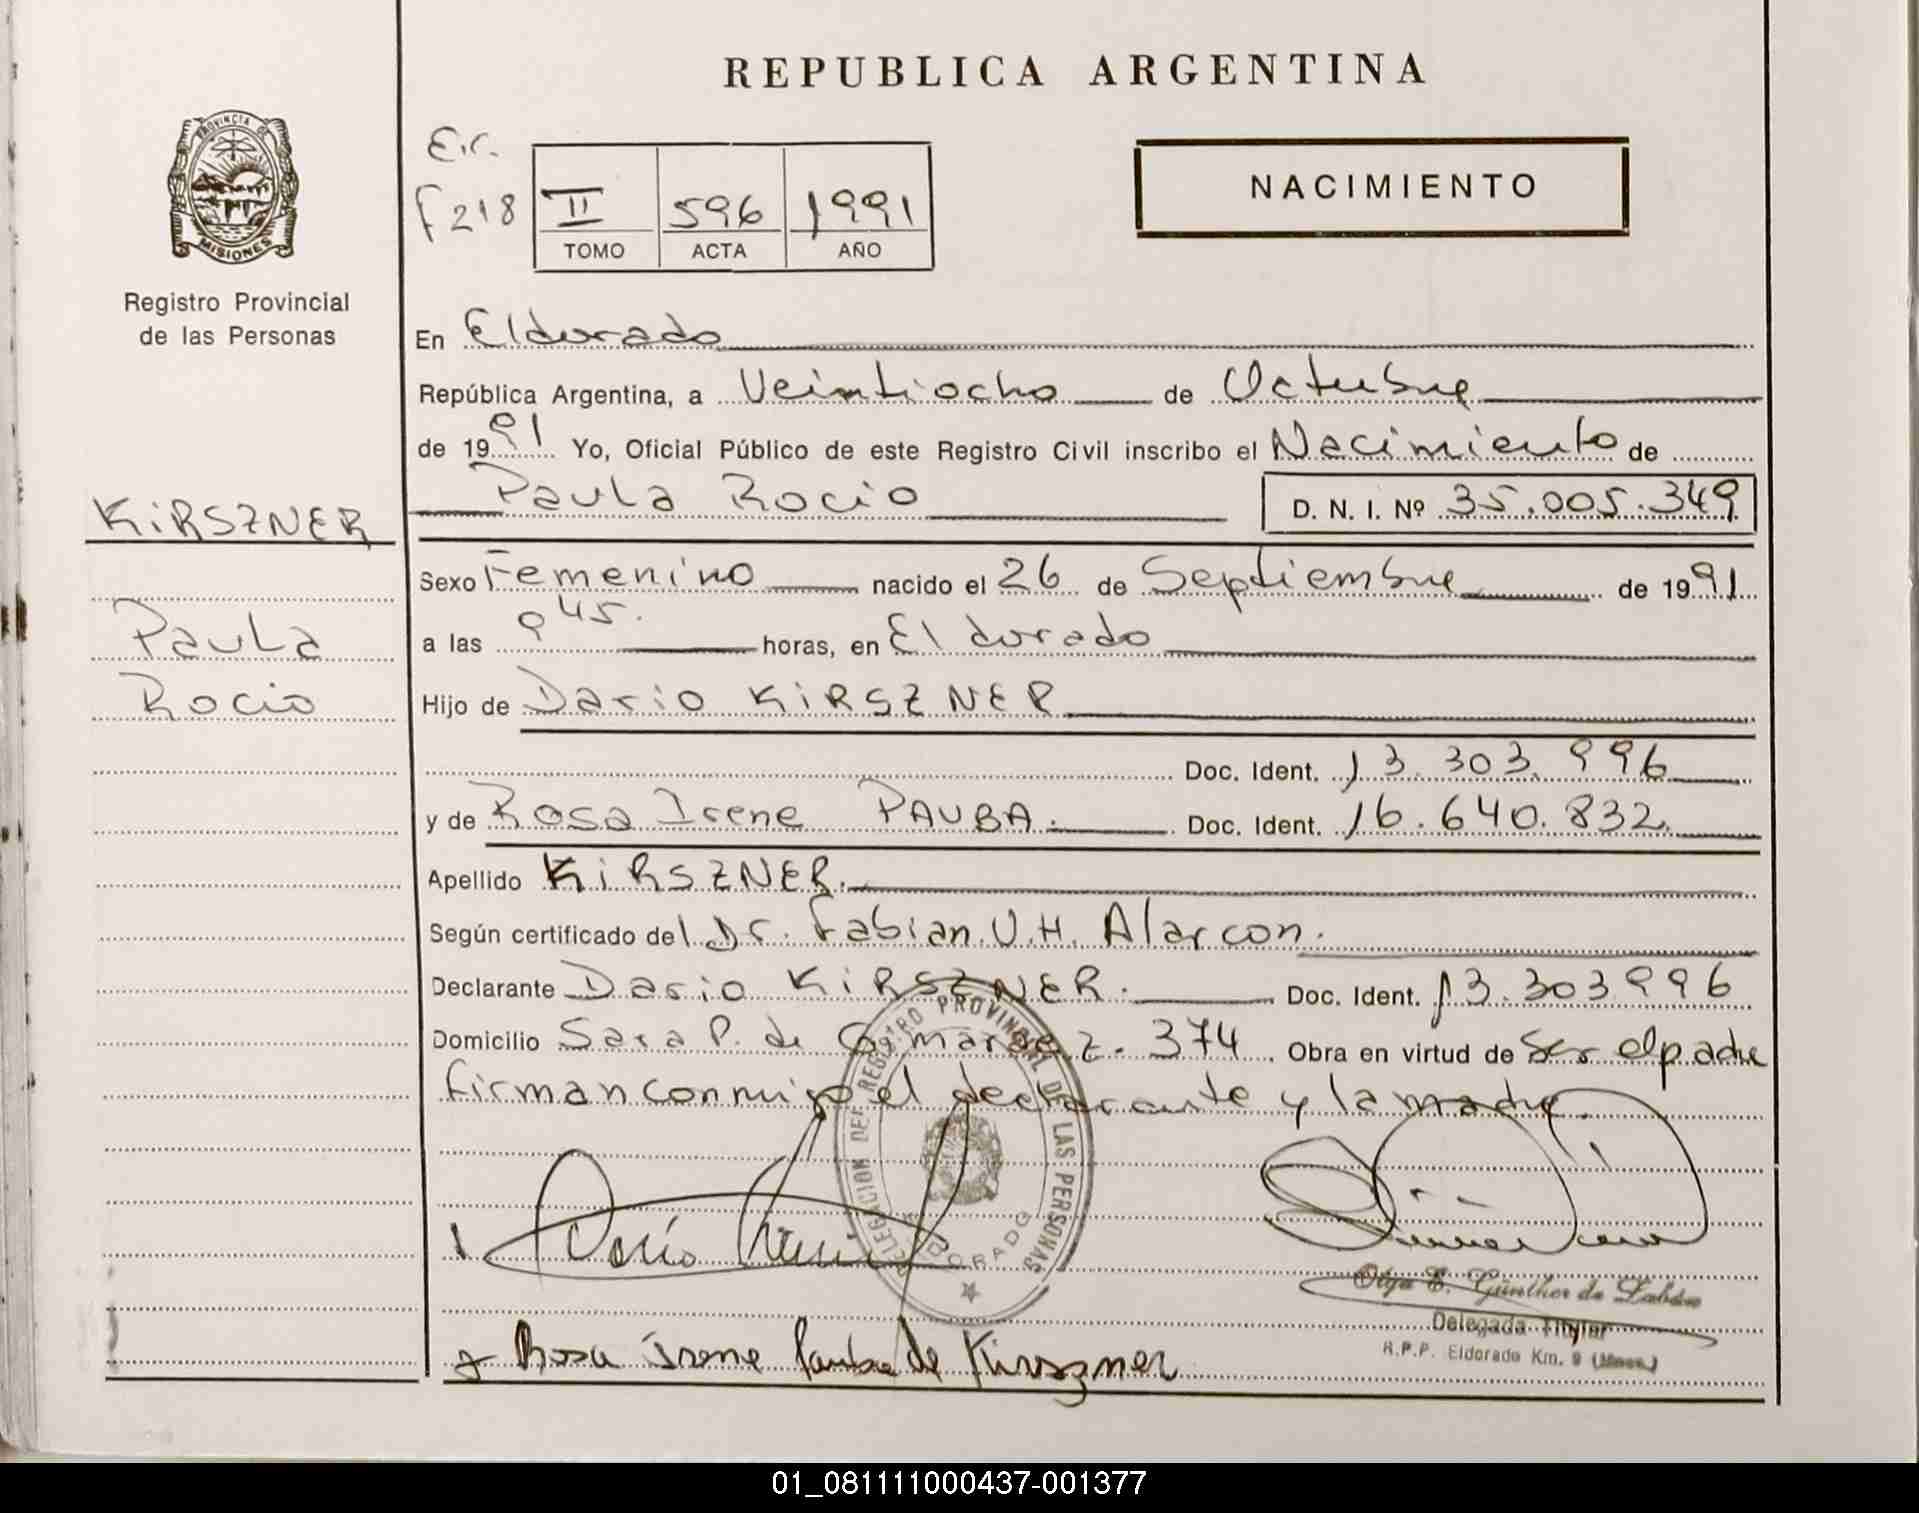 REPUBLICA ARGENTINA
PROVINCIA DE
MISIONES
Registro Provincial
de las Personas
E.C.
F218
II 596 1991
TOMO ACTA AÑO
NACIMIENTO
En Eldorado
República Argentina, a Veintiocho de Octubre
de 1991 Yo, Oficial Público de este Registro Civil inscribo el Nacimiento de
Paula Rocio D. N. I. Nº 35.005.349
KiRSZNER
Paula
Rocio
Sexo Femenino nacido el 26 de Septiembre de 1991
a las 9 45. horas, en El dorado
Hijo de Dario KiRSZNER
Doc. Ident. 13.303.996
y de Rosa Irene PAUBA. Doc. Ident. 16.640.832.
Apellido KiRSZNER.
Según certificado del Dr. Fabian U.H. Alarcon.
Declarante Dario KiRSZNER. Doc. Ident. 13.303996
Domicilio Sara P. de 374 Obra en virtud de Ser el padre
firman conmigo el declarante y la madre.
DELEGACION DEL REGISTRO PROVINCIAL DE LAS PERSONAS
ELDORADO
Olga E. Günther de
Delegada Titular
R.P.P. Eldorado Km. 9 (Mnes.)
Rosa Irene Pauba de Kirszner
01_081111000437-001377